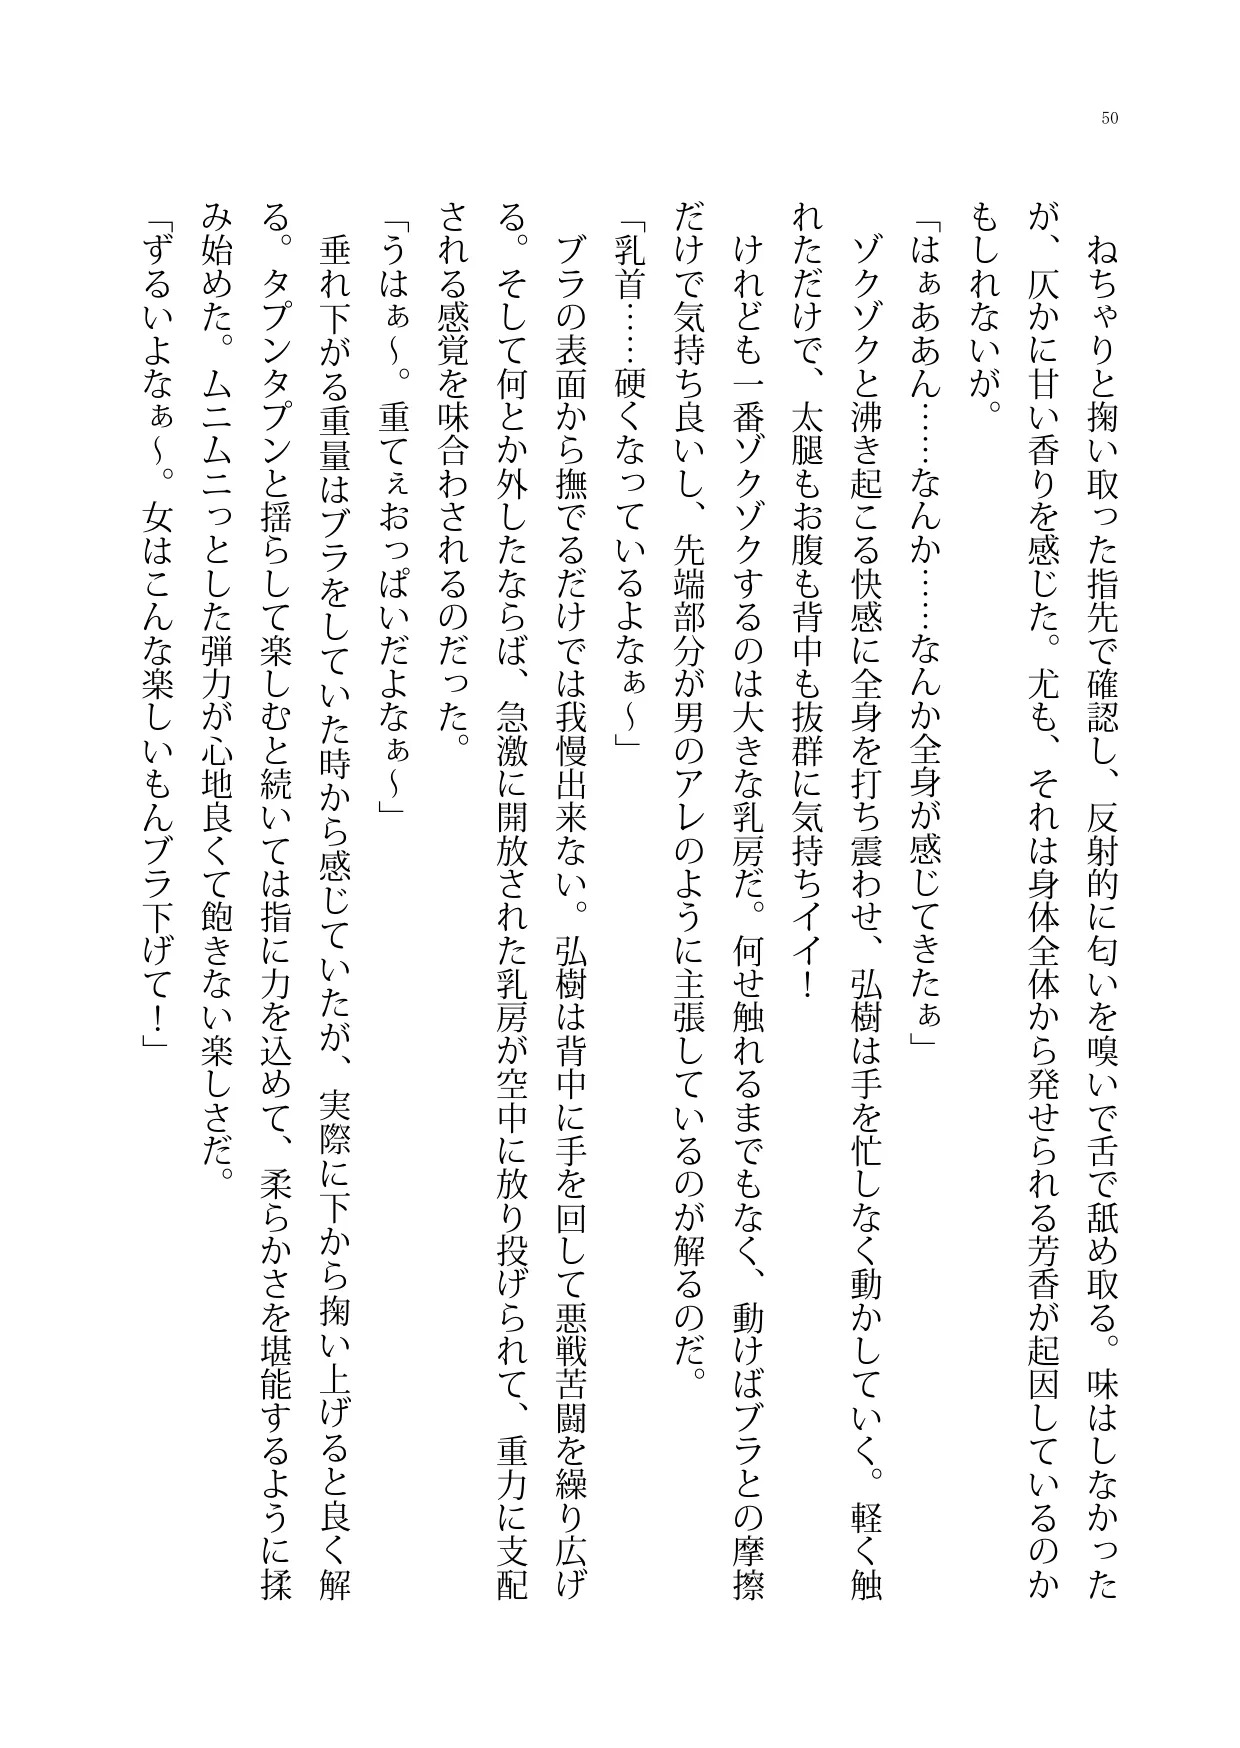 50
　ねちゃりと掬い取った指先で確認し、反射的に匂いを嗅いで舌で舐め取る。味はしなかった
が、仄かに甘い香りを感じた。尤も、それは身体全体から発せられる芳香が起因しているのか
もしれないが。
「はぁああん……なんか……なんか全身が感じてきたぁ」
　ゾクゾクと沸き起こる快感に全身を打ち震わせ、弘樹は手を忙しなく動かしていく。軽く触
れただけで、太腿もお腹も背中も抜群に気持ちイイ！
　けれども一番ゾクゾクするのは大きな乳房だ。何せ触れるまでもなく、動けばブラとの摩擦
だけで気持ち良いし、先端部分が男のアレのように主張しているのが解るのだ。
「乳首……硬くなっているよなぁ～」
　ブラの表面から撫でるだけでは我慢出来ない。弘樹は背中に手を回して悪戦苦闘を繰り広げ
る。そして何とか外したならば、急激に開放された乳房が空中に放り投げられて、重力に支配
される感覚を味合わされるのだった。
「うはぁ～。重てぇおっぱいだよなぁ～」
　垂れ下がる重量はブラをしていた時から感じていたが、実際に下から掬い上げると良く解
る。タプンタプンと揺らして楽しむと続いては指に力を込めて、柔らかさを堪能するように揉
み始めた。ムニムニっとした弾力が心地良くて飽きない楽しさだ。
「ずるいよなぁ～。女はこんな楽しいもんブラ下げて！」